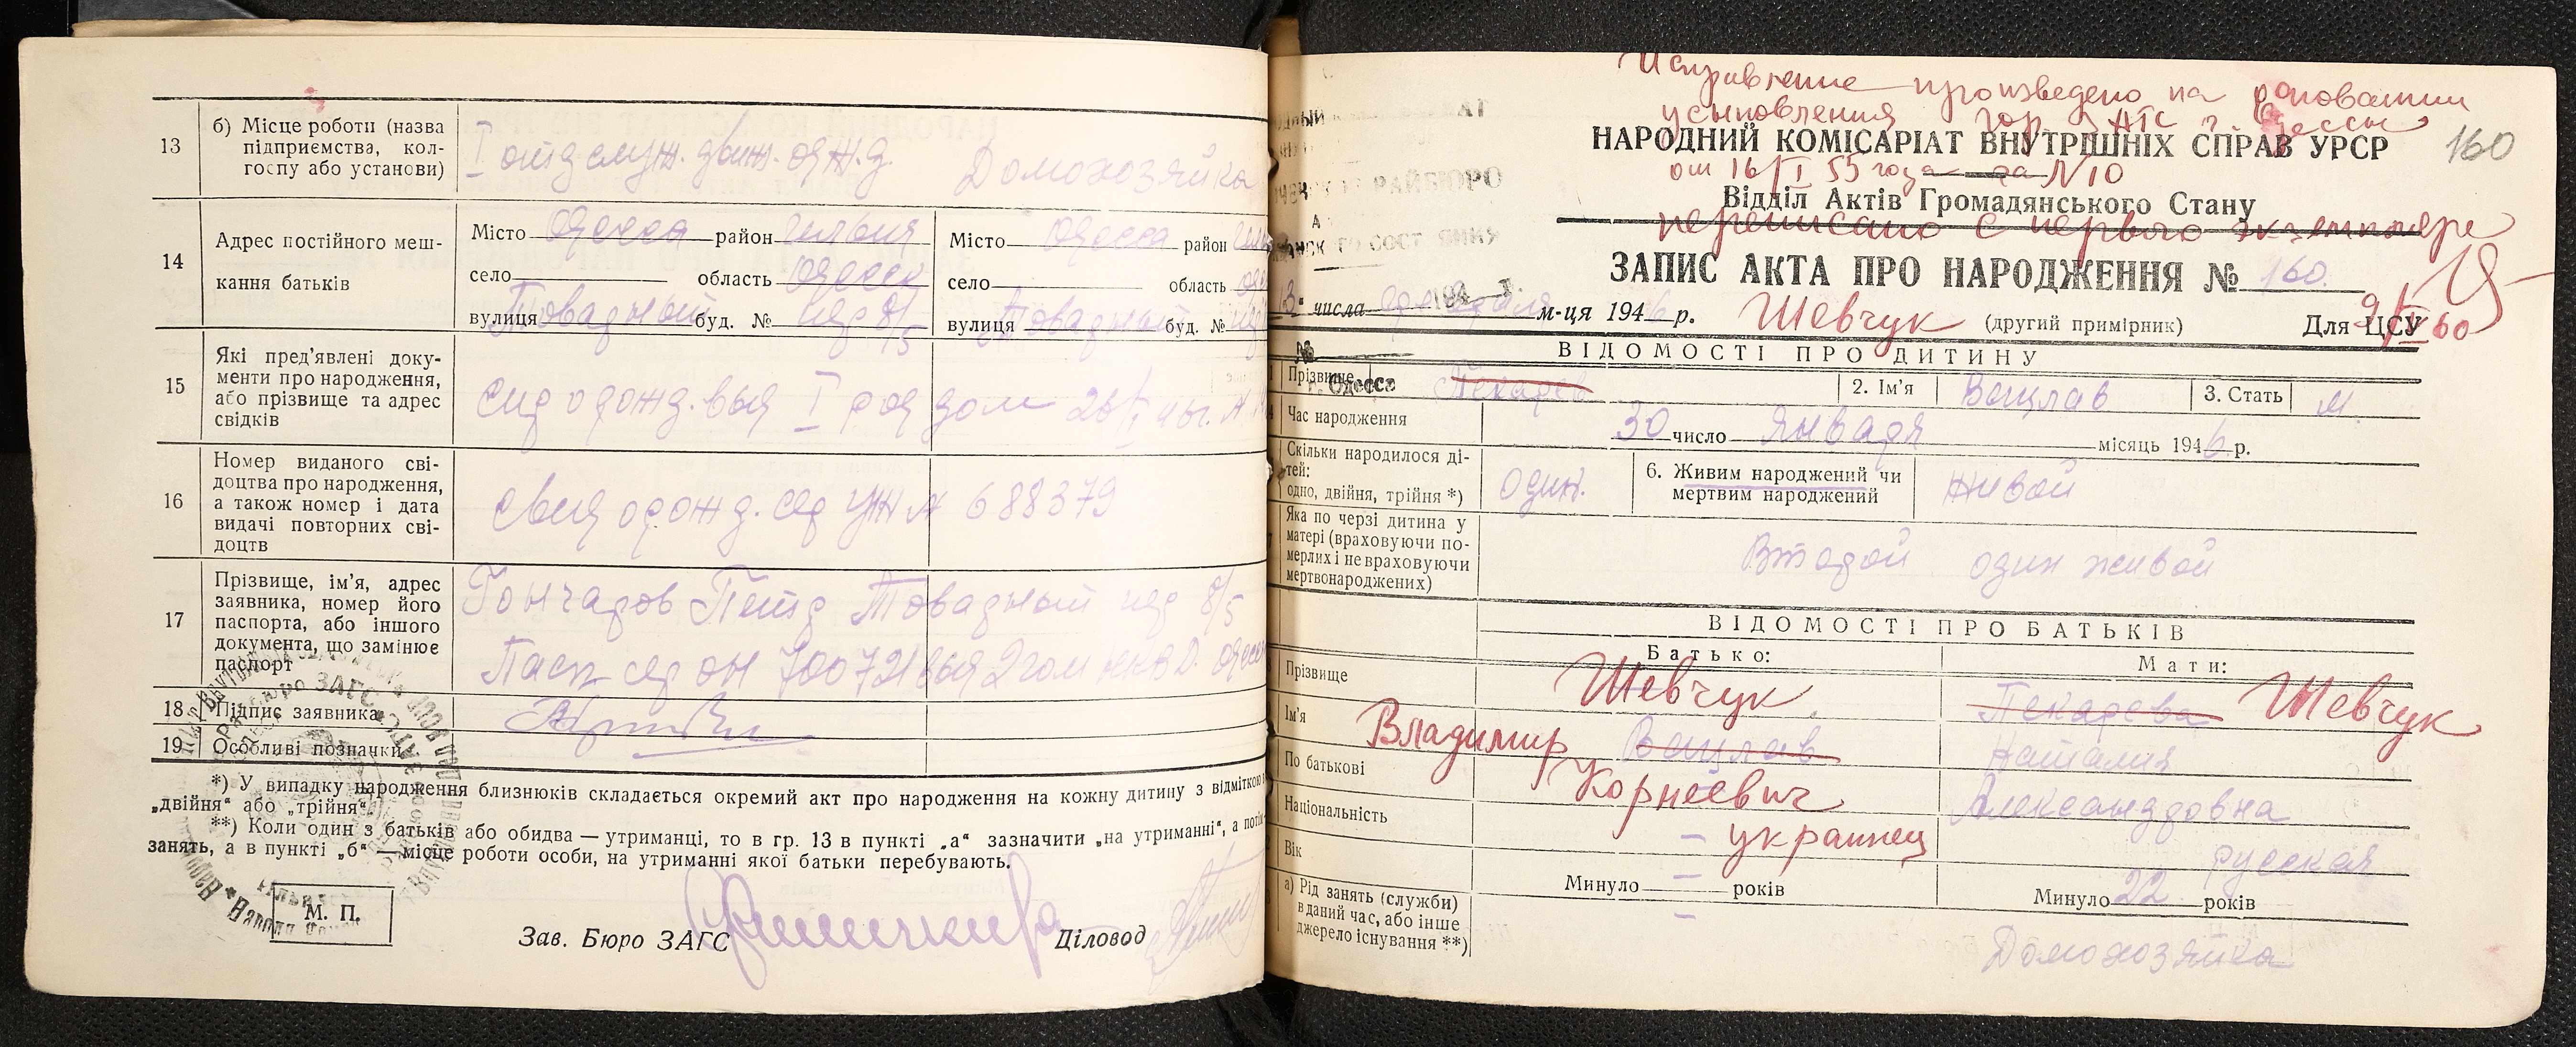 13
б) Місце роботи (назва
підприємства, кол-
госпу або установи)
I отд служ. движ. од ж. д.
Домохозяйка
14
Адрес постійного меш-
кання батьків
Місто Одесса район
село область Одесск
вулиця Товарный буд. № 8/5
Місто Одесса район
село область
вулиця Товарный буд. №
15
Які пред'явлені доку-
менти про народження,
або прізвище та адрес
свідків
I род дом
16
Номер виданого сві-
доцтва про народження,
а також номер і дата
видачі повторних сві-
доцтв
Свид о рожд. сер УЖ № 688379
17
Прізвище, ім'я, адрес
заявника, номер його
паспорта, або іншого
документа, що замінює
паспорт
Гончаров Петр Товарный пер 8/5
Пасп сер ОН 700721 выд 2 гом НКВД. Одесс
18
Підпис заявника
19
Особливі позначки
*) У випадку народження близнюків складається окремий акт про народження на кожну дитину з відміткою
„двійня“ або „трійня“.
**) Коли один з батьків або обидва — утриманці, то в гр. 13 в пункті „а“ зазначити „на утриманні“, а потім
занять, а в пункті „б“ — місце роботи особи, на утриманні якої батьки перебувають.
М. П.
Зав. Бюро ЗАГС
Діловод
Исправление произведено на основании
усыновления гор ЗАГС г Одессы
НАРОДНИЙ КОМІСАРІАТ ВНУТРІШНІХ СПРАВ УРСР
160
от 16/I 55 года за N 10
Відділ Актів Громадянського Стану
переписано с первого экземпляра
РАЙБЮРО
ЗАПИС АКТА ПРО НАРОДЖЕННЯ № 160.
числа м-ця 1946 р. Шевчук (другий примірник) Для ЦСУ
ВІДОМОСТІ ПРО ДИТИНУ
Прізвище
г. Одесса
Пекарев
2. Ім'я
Вацлав
3. Стать
м
Час народження
30 число января місяць 1946 р.
Скільки народилося ді-
тей:
одно, двійня, трійня *)
один.
6. Живим народжений чи
мертвим народжений
живой
Яка по черзі дитина у
матері (враховуючи по-
мерлих і не враховуючи
мертвонароджених)
Второй один живой
ВІДОМОСТІ ПРО БАТЬКІВ
Батько:
Мати:
Прізвище
Шевчук
Пекарева Шевчук
Ім'я
Владимир Вацлав
Наталия
По батькові
Корнеевич
Александровна
Національність
— украинец
русская
Вік
Минуло — років
Минуло 22 років
а) Рід занять (служби)
в даний час, або інше
джерело існування **)
—
Домохозяйка